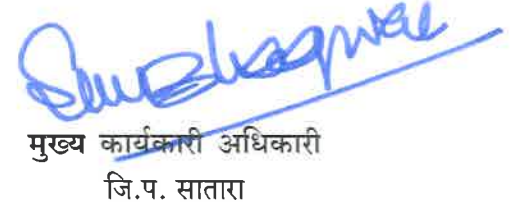 मुख्य कार्यकारी अधिकारी
जि.प. सातारा